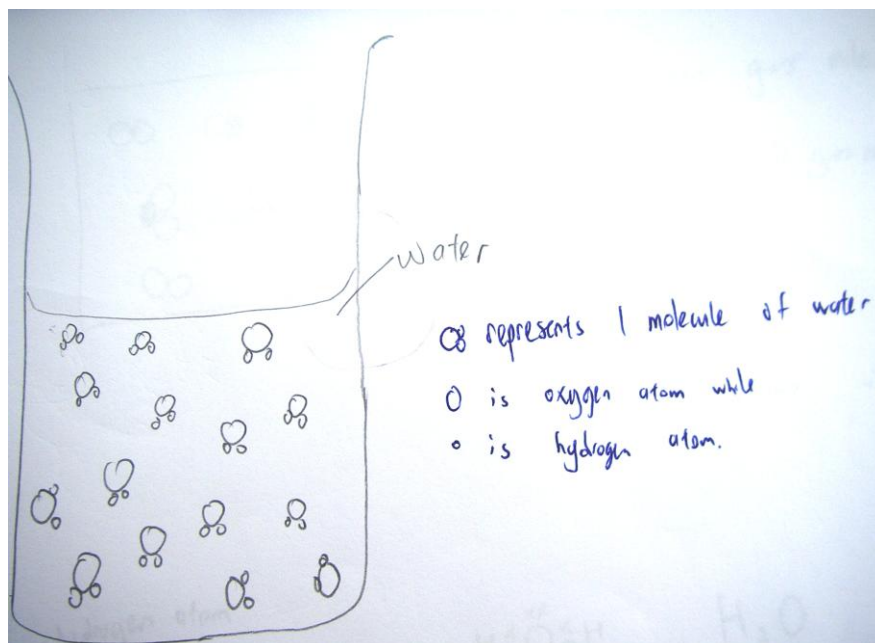 water
represents 1 molecule of water
is oxygen atom while
is hydrogen atom.